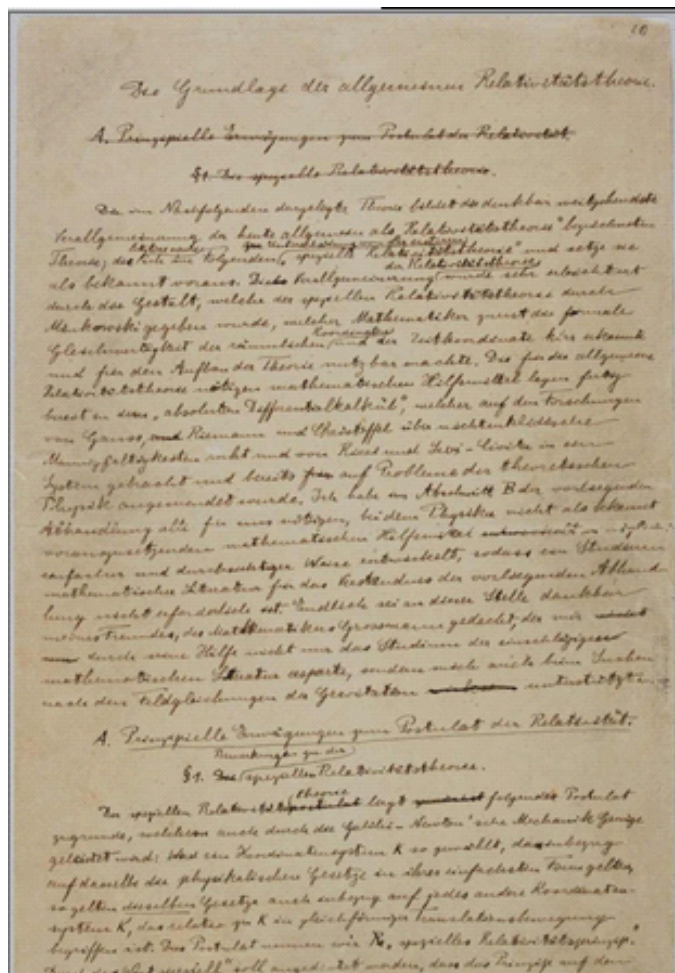 10
Die Grundlage der allgemeinen Relativitätstheorie.
A. Prinzipielle Erwägungen zum Postulat der Relativität.
§1. Die spezielle Relativitätstheorie.
Die im Nachfolgenden dargelegte Theorie bildet die denkbar weitgehendste
Verallgemeinerung der heute allgemein als „Relativitätstheorie" bezeichneten
Theorie; die letztere nenne ich im Folgenden zur Unterscheidung von der ersteren „spezielle Relativitätstheorie" und setze sie
als bekannt voraus. Die Verallgemeinerung der Relativitätstheorie wurde sehr erleichtert
durch die Gestalt, welche der speziellen Relativitätstheorie durch
Minkowski gegeben wurde, welcher Mathematiker zuerst die formale
Gleichwertigkeit der räumlichen Koordinaten und der Zeitkoordinate klar erkannte
und für den Aufbau der Theorie nutzbar machte. Die für die allgemeine
Relativitätstheorie nötigen mathematischen Hilfsmittel lagen fertig
bereit in dem „absoluten Differentialkalkül", welcher auf den Forschungen
von Gauss, und Riemann und Christoffel über nichteuklidische
Mannigfaltigkeiten ruht und von Ricci und Levi-Civita in ein
System gebracht und bereits auf Probleme der theoretischen
Physik angewendet wurde. Ich habe im Abschnitt B der vorliegenden
Abhandlung alle für uns nötigen, bei dem Physiker nicht als bekannt
vorauszusetzenden mathematischen Hilfsmittel in möglichst
einfacher und durchsichtiger Weise entwickelt, sodass ein Studium
mathematischer Literatur für das Verständnis der vorliegenden Abhand-
lung nicht erforderlich ist. Endlich sei an dieser Stelle dankbar
meines Freundes, des Mathematikers Grossmann gedacht, der mir
durch seine Hilfe nicht nur das Studium der einschlägigen
mathematischen Literatur ersparte, sondern mich auch beim Suchen
nach den Feldgleichungen der Gravitation unterstützte.
A. Prinzipielle Erwägungen zum Postulat der Relativität.
Bemerkungen zu der
§1. Die speziellen Relativitätstheorie.
Der speziellen Relativitätstheorie postulat liegt folgendes Postulat
zugrunde, welchem auch durch die Galilei-Newton'sche Mechanik Genüge
geleistet wird: Wird ein Koordinatensystem K so gewählt, dass inbezug
auf dasselbe die physikalischen Gesetze in ihrer einfachsten Form gelten,
so gelten dieselben Gesetze auch inbezug auf jedes andere Koordinaten-
system K', das relativ zu K in gleichförmiger Translationsbewegung
begriffen ist. Dies Postulat nennen wir „spezielles Relativitätsprinzip."
Durch das Wort „speziell" soll angedeutet werden, dass das Prinzip auf den